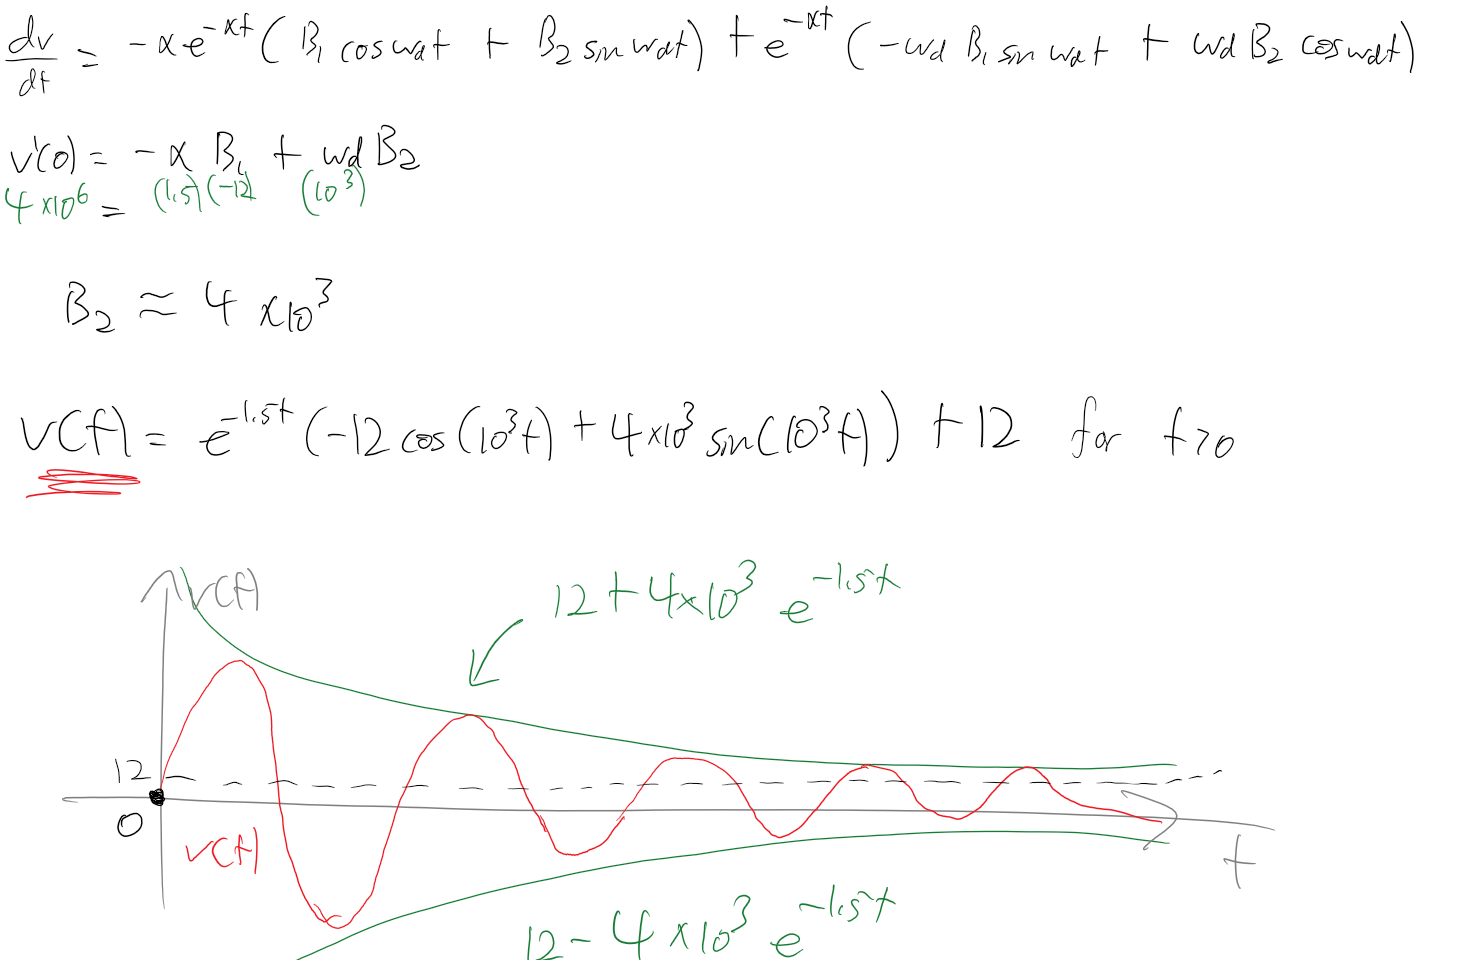 dv/dt = -αe^-αt ( B₁ cos ωdt + B₂ sin ωdt) + e^-αt (-ωd B₁ sin ωdt + ωd B₂ cos ωdt)
v'(0) = -α B₁ + ωd B₂
4×10⁶ = (1.5) (-12) (10³)
B₂ ≈ 4 ×10³
v(t) = e^-1.5t (-12 cos(10³t) + 4×10³ sin(10³t)) + 12 for t>0
v(t)
12 + 4×10³ e^-1.5t
12
0
v(t)
t
12 - 4×10³ e^-1.5t